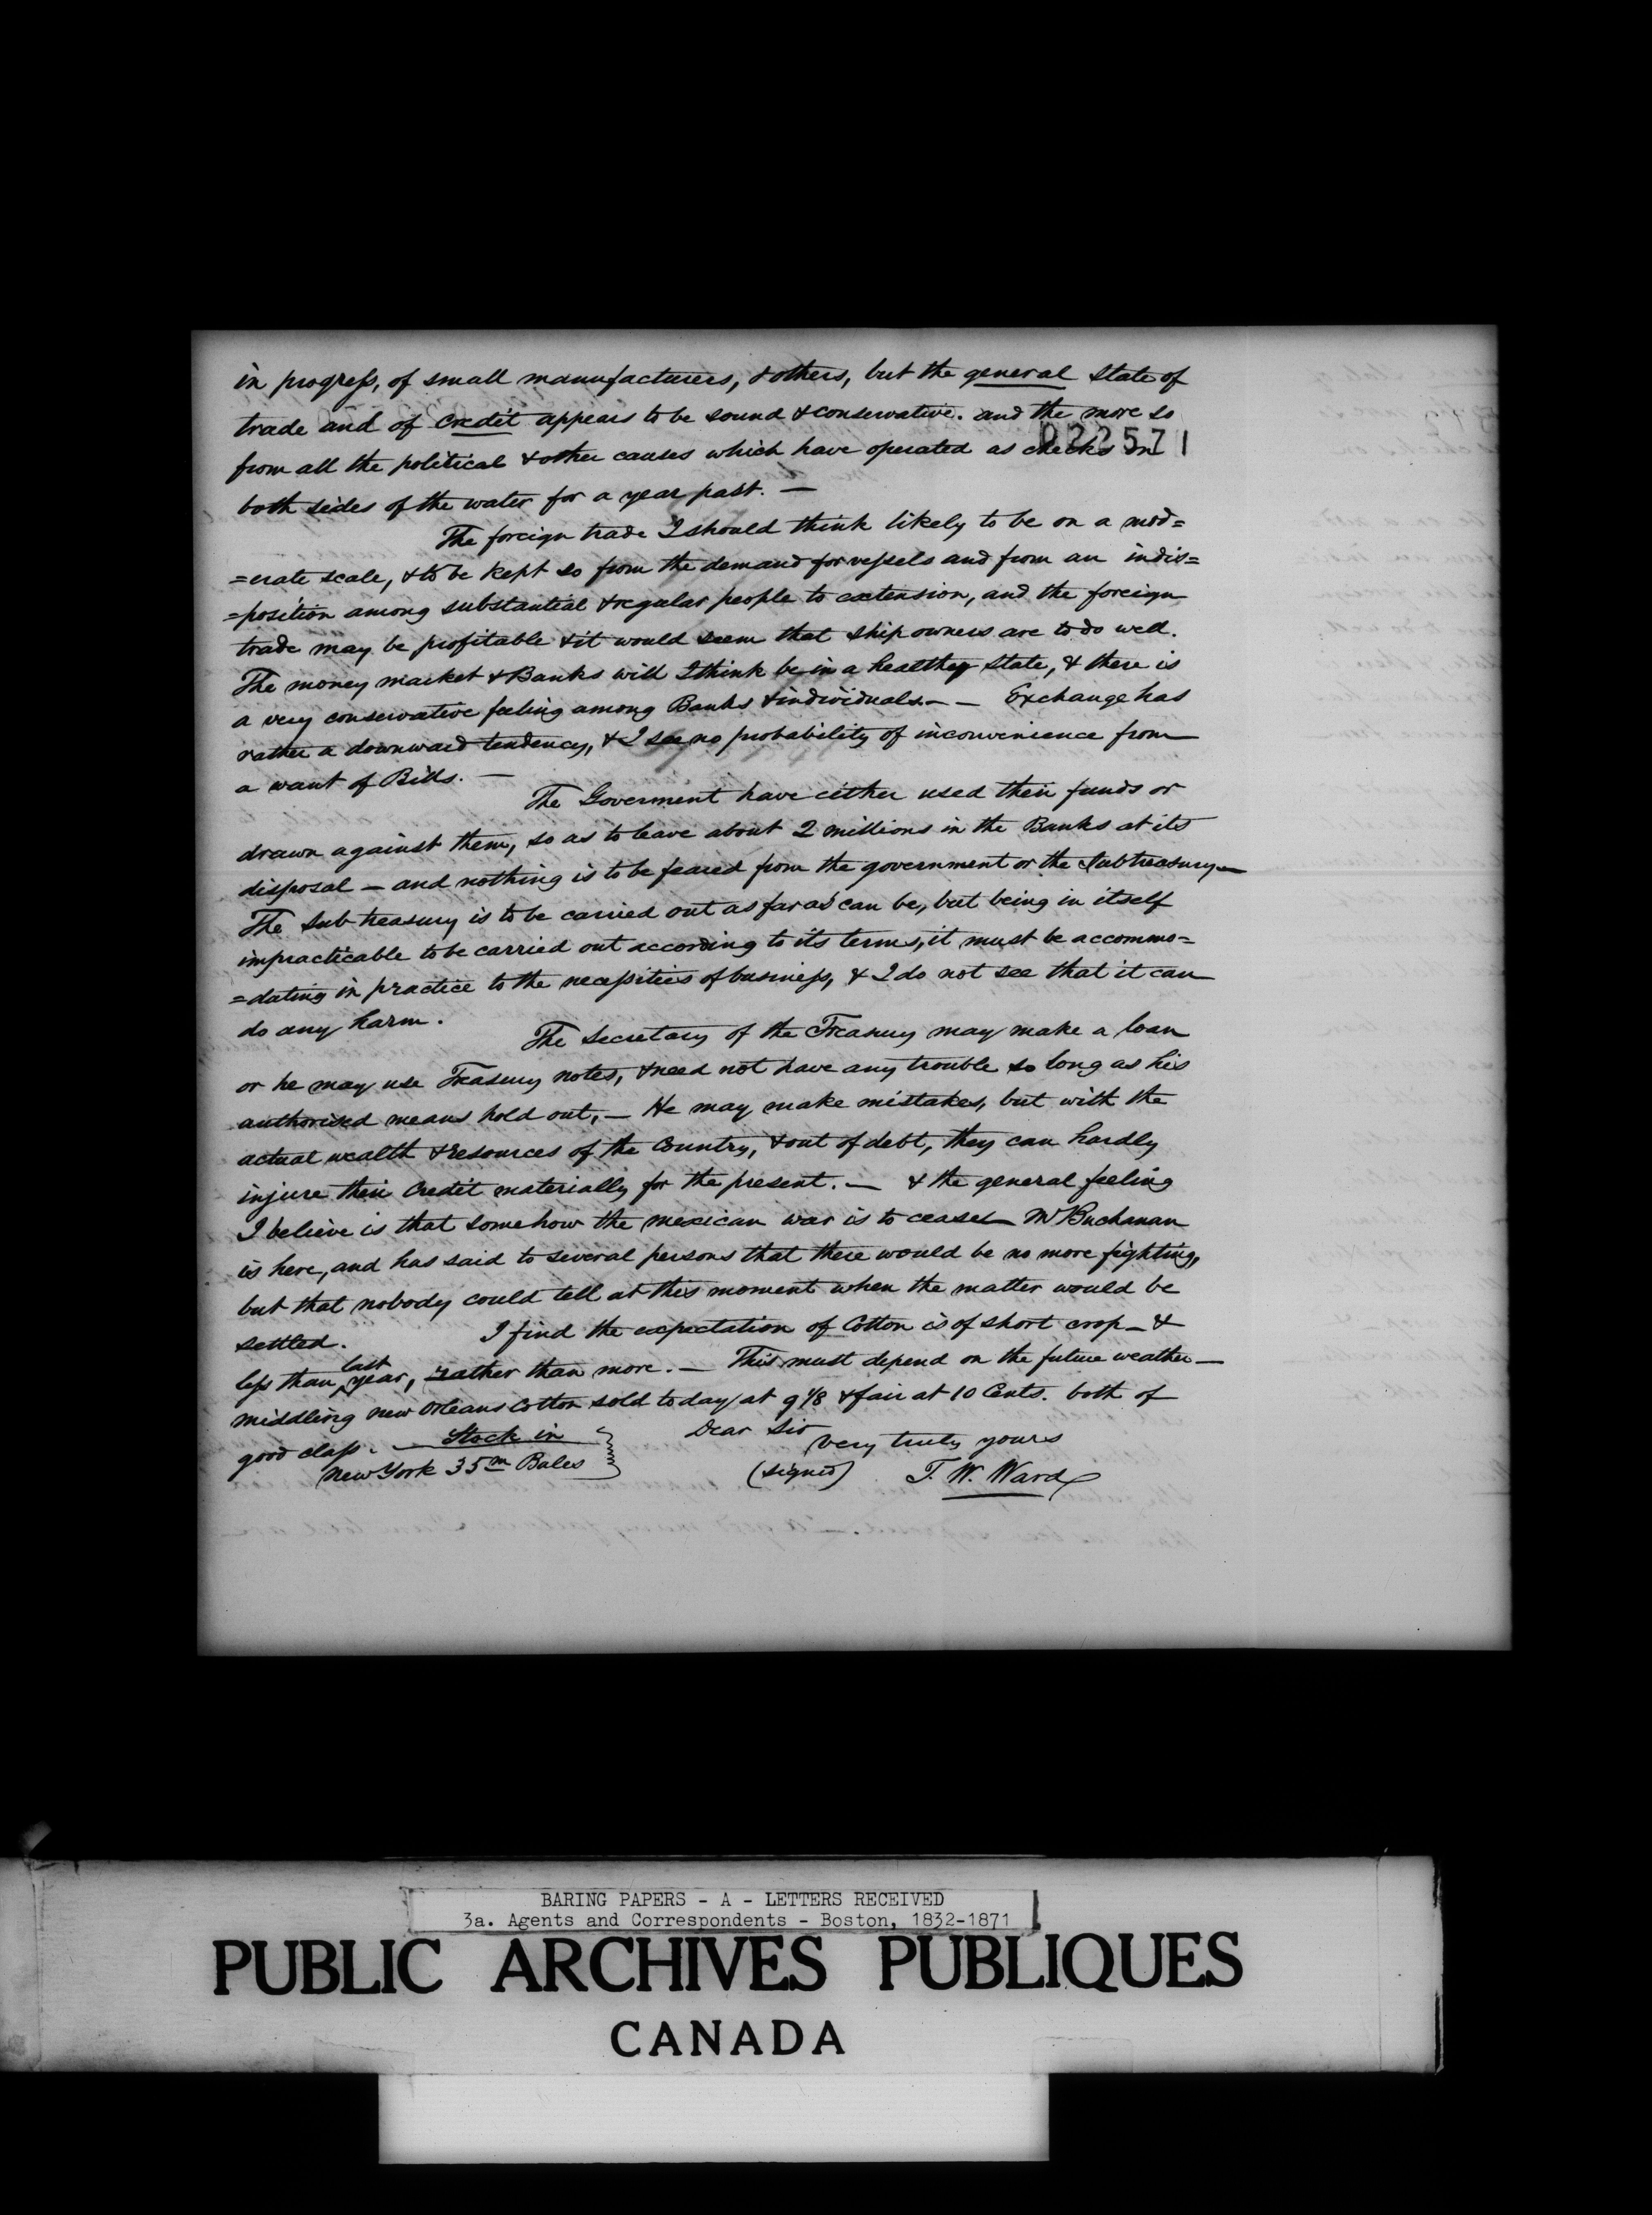 in progress, of small manufacturers, & others, but the general state of
trade and of credit appears to be sound & conservative. and the more so
022571
from all the political & other causes which have operated as checks on
both sides of the water for a year past. —
The foreign trade I should think likely to be on a mod=
=erate scale, & to be kept so from the demand for vessels and from an indis=
=position among substantial & regular people to extension, and the foreign
trade may be profitable & it would seem that ship owners are to do well.
The money market & Banks will I think be in a healthy state, & there is
a very conservative feeling among Banks & individuals. — — Exchange has
rather a downward tendency, & I see no probability of inconvenience from
a want of Bills. —
The Goverment have either used their funds or
drawn against them, so as to leave about 2 millions in the Banks at its
disposal — and nothing is to be feared from the government or the Subtreasury —
The Sub treasury is to be carried out as far as can be, but being in itself
impracticable to be carried out according to its terms, it must be accommo=
=dating in practice to the necessities of business, & I do not see that it can
do any harm.
The Secretary of the Treasury may make a loan
or he may use Treasury notes, & need not have any trouble so long as his
authorised means hold out, — He may make mistakes, but with the
actual wealth & resources of the Country, & out of debt, they can hardly
injure their Credit materially for the present. — & the general feeling
I believe is that somehow the mexican war is to cease — Mr Buchanan
is here, and has said to several persons that there would be no more fighting,
but that nobody could tell at this moment when the matter would be
settled.
I find the expectation of Cotton is of short crop — &
less than last year, rather than more. — This must depend on the future weather —
middling new Orleans Cotton sold today at 9 1/8 & fair at 10 Cents. both of
good class. — Stock in
New York 35m Bales
Dear Sir
very truly yours
(signed) T. W. Ward
BARING PAPERS - A - LETTERS RECEIVED
3a. Agents and Correspondents - Boston, 1832-1871
PUBLIC ARCHIVES PUBLIQUES
CANADA